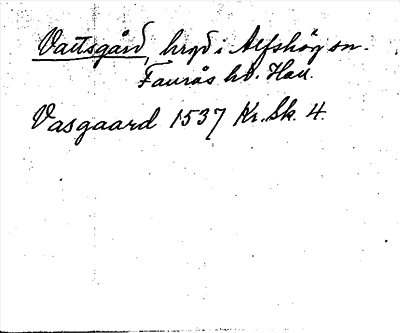 Vastsgård, hrgd i Alfshög sn.
Faurås hd. Hall.
Vasgaard 1537 Kr. Sk. 4.